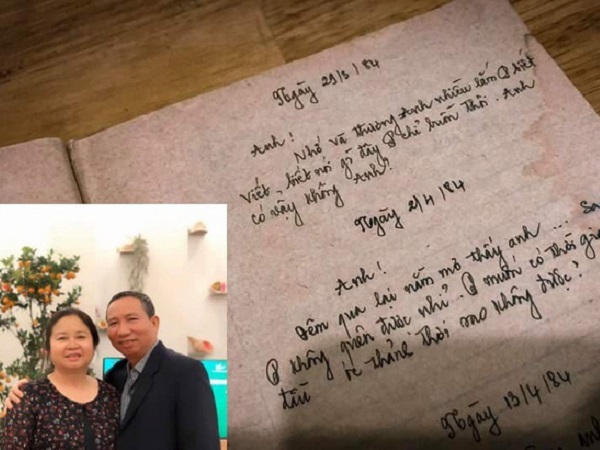 Ngày 29/3/84
Anh!
Nhớ và thương Anh nhiều lắm P biết
viết, biết nói gì đây P chỉ buồn thôi. Anh
có vậy không Anh?
Ngày 2/4/84
Anh!
Đêm qua lại nằm mơ thấy anh ... Sao
P không quên được nhỉ? P muốn có thời gian
đầu óc thảnh thơi sao không được?
Ngày 13/4/84